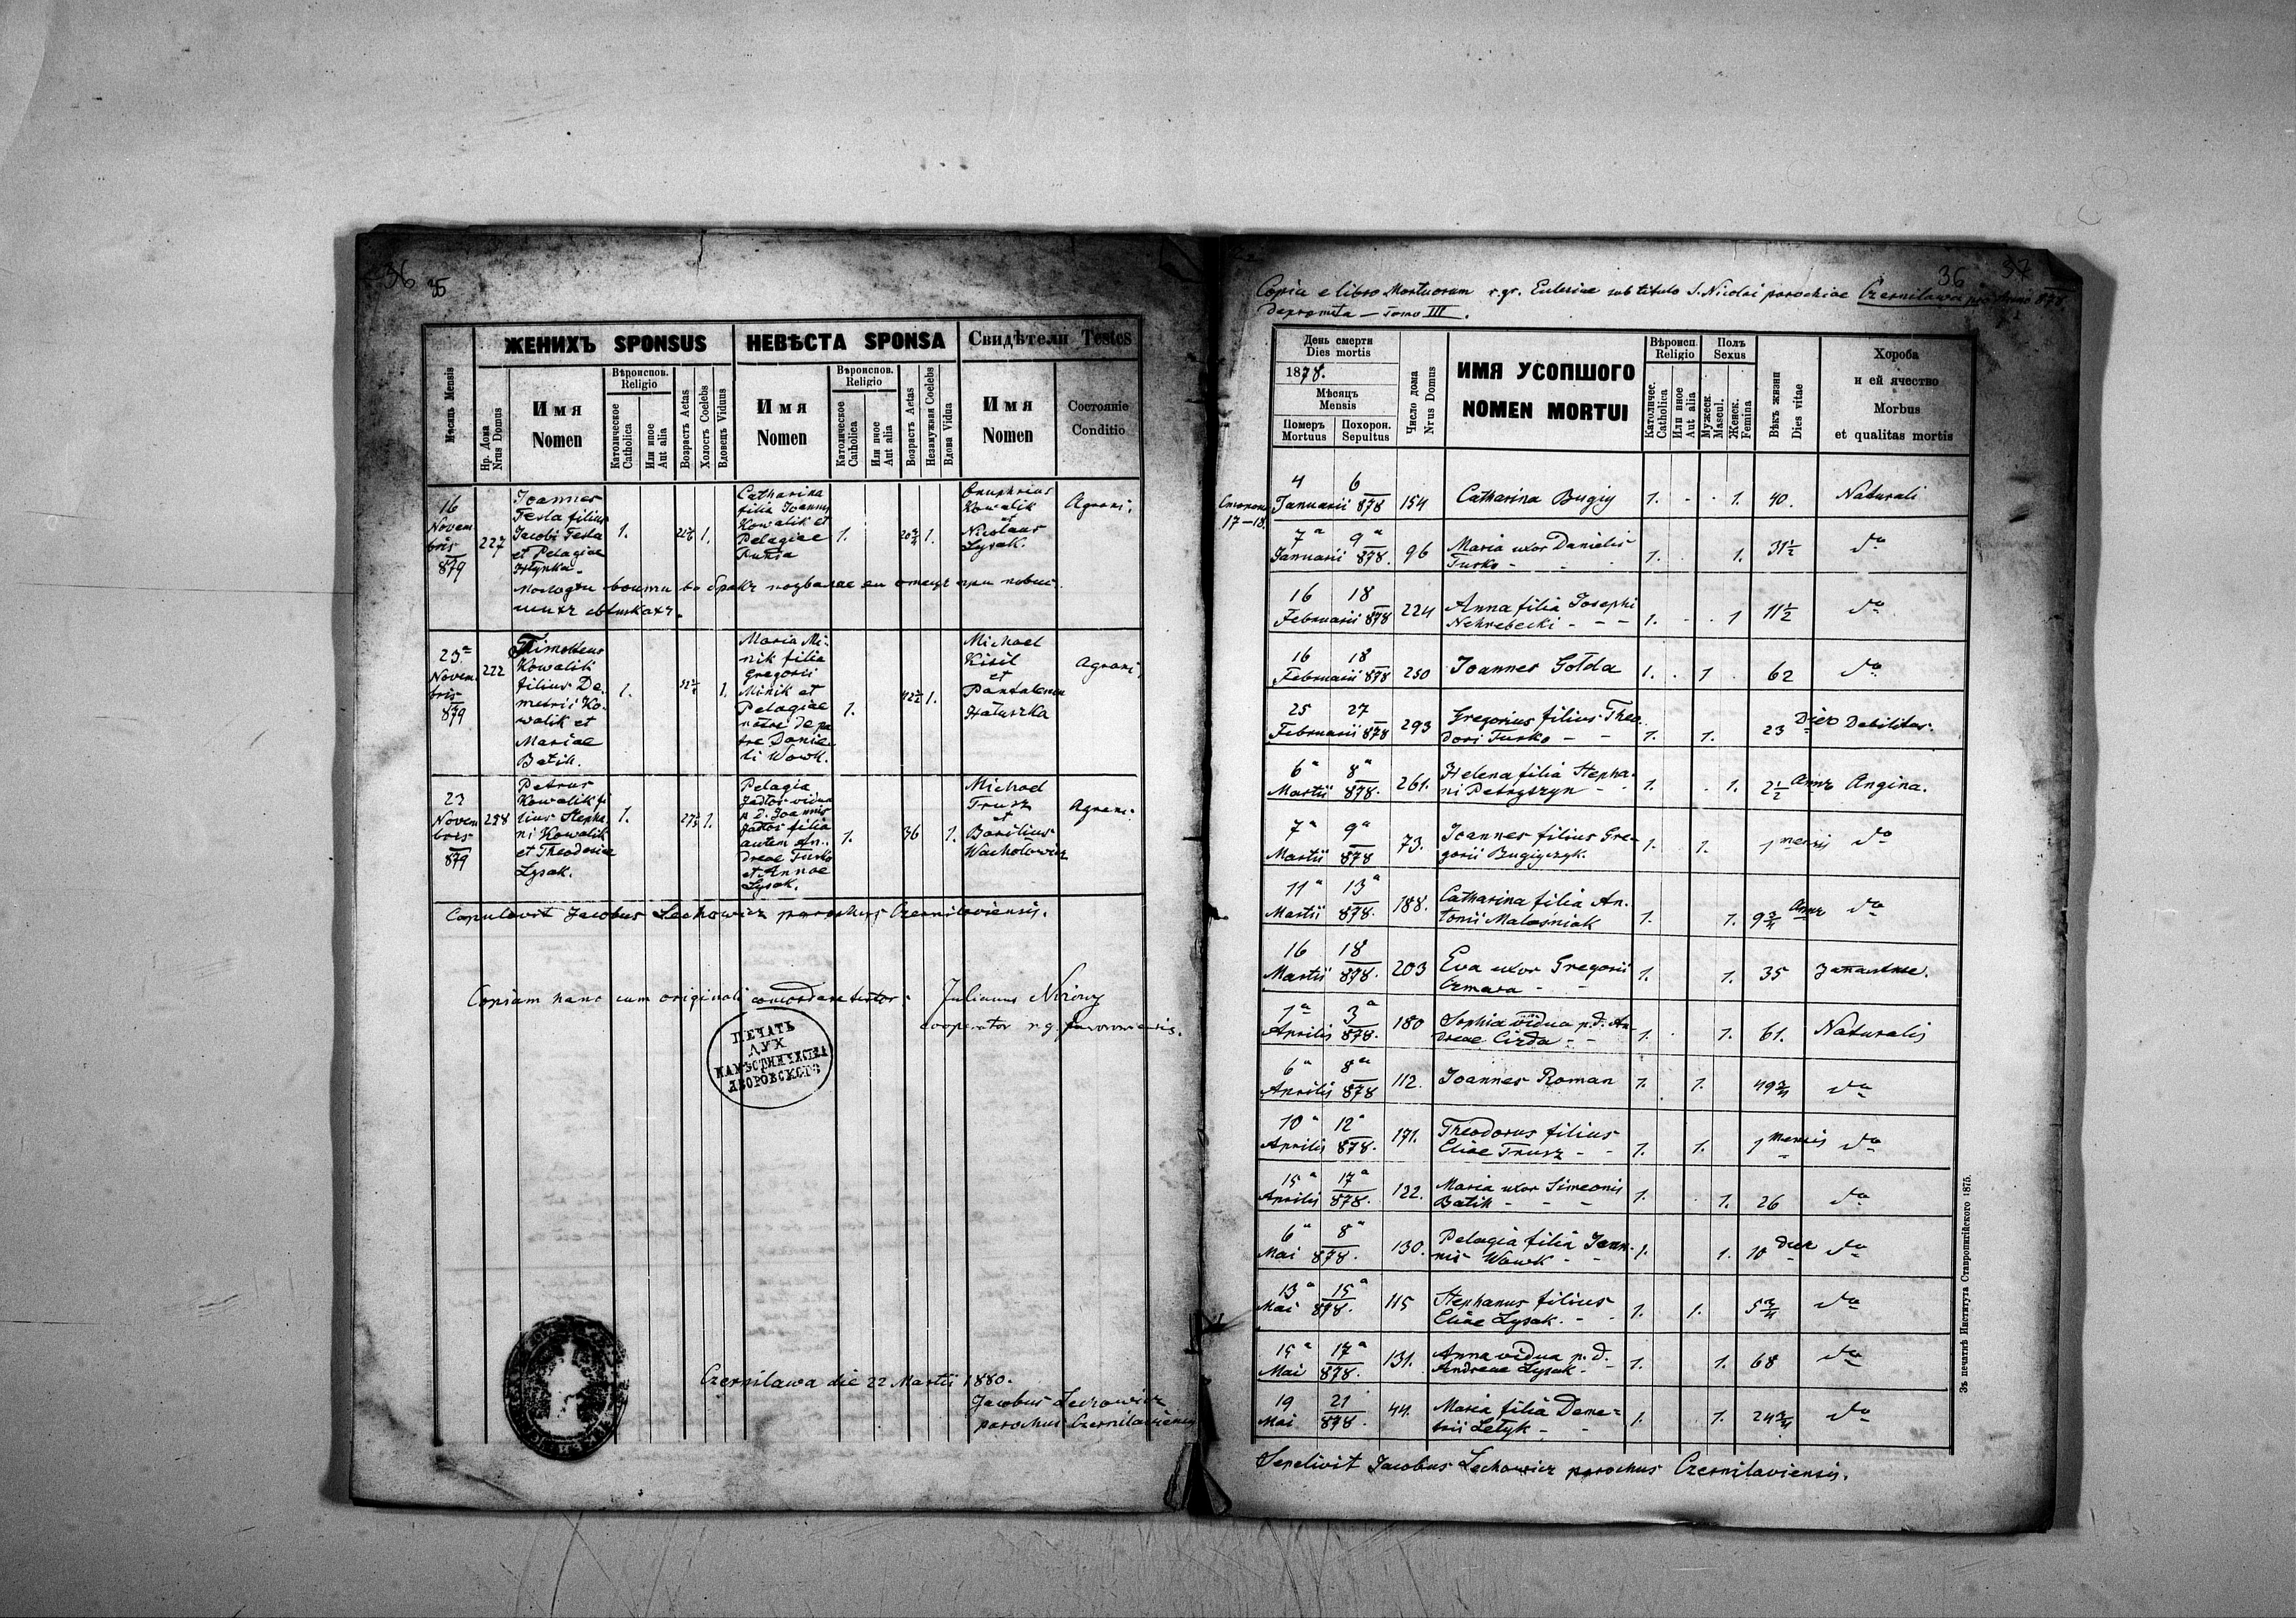 36 35
ЖЕНИХЪ SPONSUS
НЕВѢСТА SPONSA
Свидѣтели Testes
Мѣсяць Mensis
Нр. Дома Nrus Domus
Имя Nomen
Вѣроиспов. Religio
Католическое Catholica
Или иное Aut alia
Возрасть Aetas
Холостъ Coelebs
Вдовець Viduus
Имя Nomen
Вѣроиспов. Religio
Католическое Catholica
Или иное Aut alia
Возрасть Aetas
Незамужная Coelebs
Вдова Vidua
Имя Nomen
Состояніе Conditio
16 Novembris 879
227
Joannes
Festa filius
Jacobi Festa
et Pelagiae
1.
1.
Catharina
filia Joannis
Kowalik et
Pelagiae
1.
1.
Onuphrius
Kowalik
et
Nicolaus
Lysak.
Agrani,
23a Novembris 879
222
Timotheus
Kowalik
filius De-
metrii Ko-
walik et
Mariae
Batik.
1.
1.
Maria Mi-
nik filia
Gregorii
Minik et
Pelagiae
natae de pa-
tre Danie-
li Wowk.
1.
1.
Michael
Kisil
et
Pantaleon
Hatuszka
Agrani,
23 Novembris 879
Petrus
Kowalik fi
lius Stepha-
ni Kowalik
et Theodosiae
Lysak.
1.
1.
Pelagia
vidua
p. d. Joannis
filia
autem An-
dreae Turko
et Annae
Lysak.
1.
36
1.
Michael
Trusz
et
Basilius
Wachołowicz
Agrani.
Copulavit Jacobus Lechowicz parochus Czernilaviensis.
Copiam hanc cum originali concordare testor. Julianus
cooperator r. g.
ПЕЧАТЬ
ДУХ
НАМѢСТНИЧХСТВА
ЯВОРОВСКОГѠ
Czernilawa die 22 Martii 1880.
Jacobus Lechowicz
parochus Czernilaviensis
36 37
Copia e libro Mortuorum r. gr. Eclesiae sub titulo S. Nicolai parochiae Czernilawa pro Anno 878
depromta — Tomo III.
День смерти Dies mortis
1878.
Мѣсяць Mensis
Померъ Mortuus
Похорон. Sepultus
Число дома Nrus Domus
ИМЯ УСОПШОГО
NOMEN MORTUI
Вѣроисп. Religio
Католичес. Catholica
Или иное Aut alia
Полъ Sexus
Мужеск. Mascul.
Женск. Femina
Вѣкъ жизни Dies vitae
Хороба
и ей ячество
Morbus
et qualitas mortis
17–18.
4 Januarii 6 878 154 Catharina Bugiy 1. 1. 40. Naturali
7a Januarii 9a 878. 96 Maria uxor Danielis
Turko - 1. 1. 31½ do
16 Februarii 18 878 224 Anna filia Josephi
Nehrebecki - - - 1. 1 11½ do
16 Februarii 18 878 250 Joannes Gołda 1. 1 62 do
25 Februarii 27 878 293 Gregorius filius Theo-
dori Turko - - 1. 1. 23 Dies Debilitas.
6a Martii 8a 878. 261. Helena filia Stepha-
ni Petryszyn - 1. 1. 2½ Ann. Angina.
7a Martii 9a 878 73. Joannes filius Gre-
gorii Bugiyczyk. 1. 1. 1 mensis do
11a Martii 13a 878. 188. Catharina filia An-
tonii Malośniak 1. 1. 9¾ Ann. do
16 Martii 18 878. 203 Eva uxor Gregorii
Czmara - 1. 1. 35
1a Aprilis 3a 878. 180 Sophia vidua p. d. An-
dreae Cirda - - 1. 1. 61. Naturalis
6a Aprilis 8a 878 112. Joannes Roman 1. 1. 49¾ do
10a Aprilis 12a 878. 171. Theodorus filius
Eliae Trusz - - 1. 1. 1 mensis do
15a Aprilis 17a 878. 122. Maria uxor Simeonis
Batik - - - 1. 1. 26 do
6a Mai 8a 878. 130. Pelagia filia Joan-
nis Wowk - - 1. 1. 10 dies do
13a Mai 15a 878. 115 Stephanus filius
Eliae Lysak. - 1. 1. 5¾ do
15a Mai 17a 878. 131. Anna vidua p. d.
Andreae Lysak - 1. 1. 68 do
19 Mai 21 878. 44. Maria filia Deme-
trii Letyk - 1. 1. 24¾ do
Sepelivit Jacobus Lechowicz parochus Czernilaviensis.
Зъ печатнѣ Института Ставропигійского 1875.